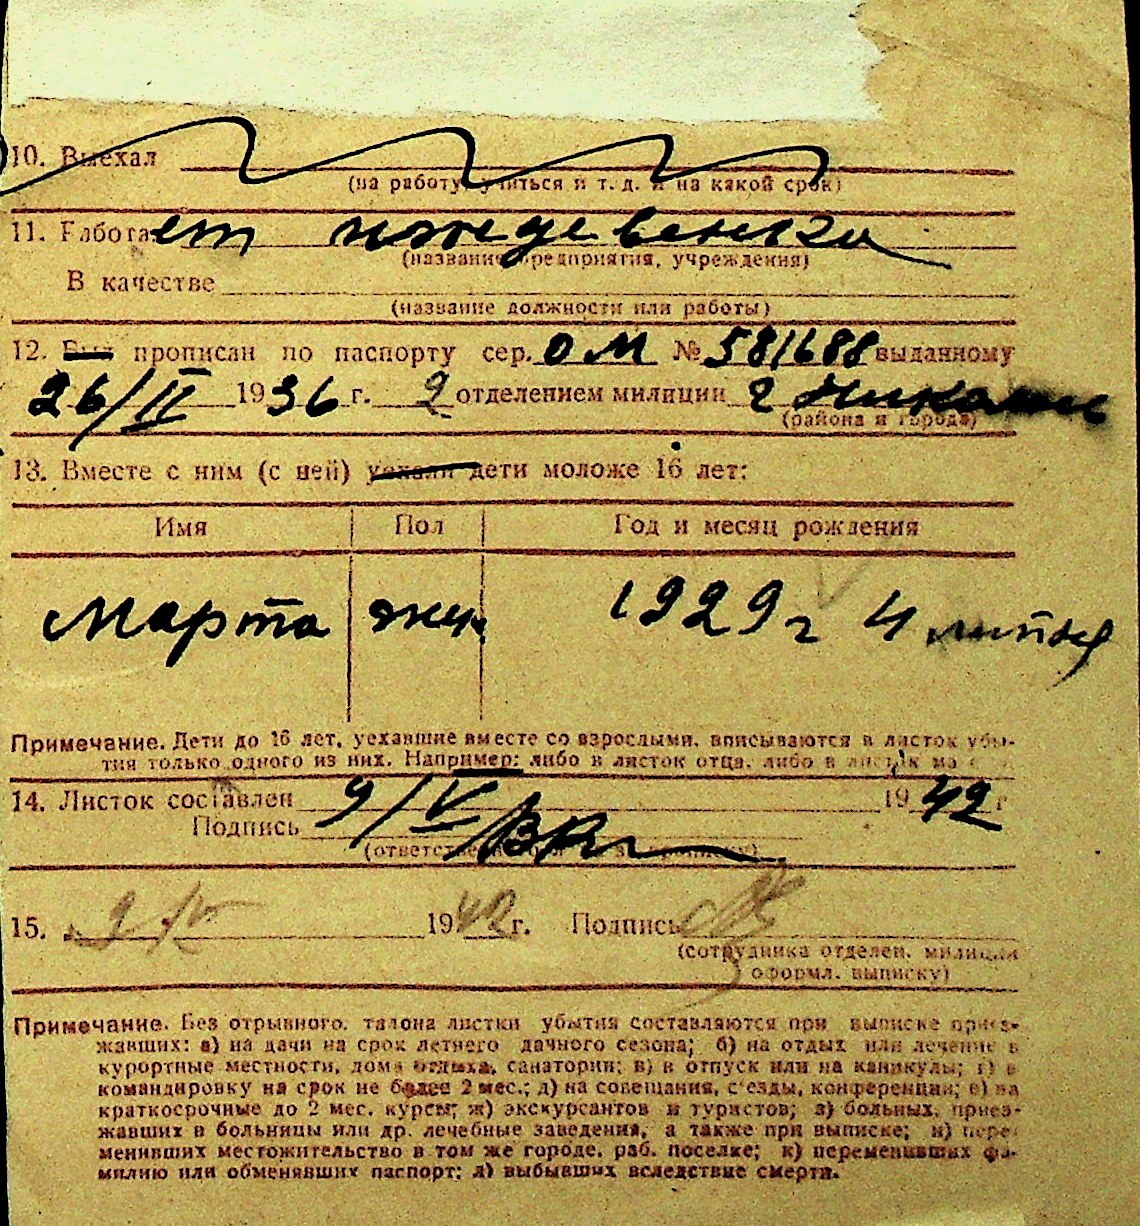 10. Выехал
(на работу, учиться и т. д. и на какой срок)
11. Работает иждевенка
(название предприятия, учреждения)
В качестве
(название должности или работы)
12. Был прописан по паспорту сер. ОМ № 581688 выданному
26/II 1936 г. 2 отделением милиции г Николаев
(района и города)
13. Вместе с ним (с ней) уехали дети моложе 16 лет:
Имя Пол Год и месяц рождения
Марта жн. 1929 г 4 липня
Примечание. Дети до 16 лет, уехавшие вместе со взрослыми, вписываются в листок убы-
тия только одного из них. Например: либо в листок отца, либо в листок ма
14. Листок составлен 9/V 1942 г
Подпись
(ответственного за прописку)
15. 9/V 1942 г. Подпись
(сотрудника отделен. милиции
оформл. выписку)
Примечание. Без отрывного талона листки убытия составляются при выписке приез-
жавших: а) на дачи на срок летнего дачного сезона; б) на отдых или лечение в
курортные местности, дома отдыха, санатории; в) в отпуск или на каникулы; г) в
командировку на срок не более 2 мес.; д) на совещания, с'езды, конференции; е) на
краткосрочные до 2 мес. курсы; ж) экскурсантов и туристов; з) больных, приез-
жавших в больницы или др. лечебные заведения, а также при выписке; и) пере-
менивших местожительство в том же городе, раб. поселке; к) переменивших фа-
милию или обменявших паспорт; л) выбывших вследствие смерти.